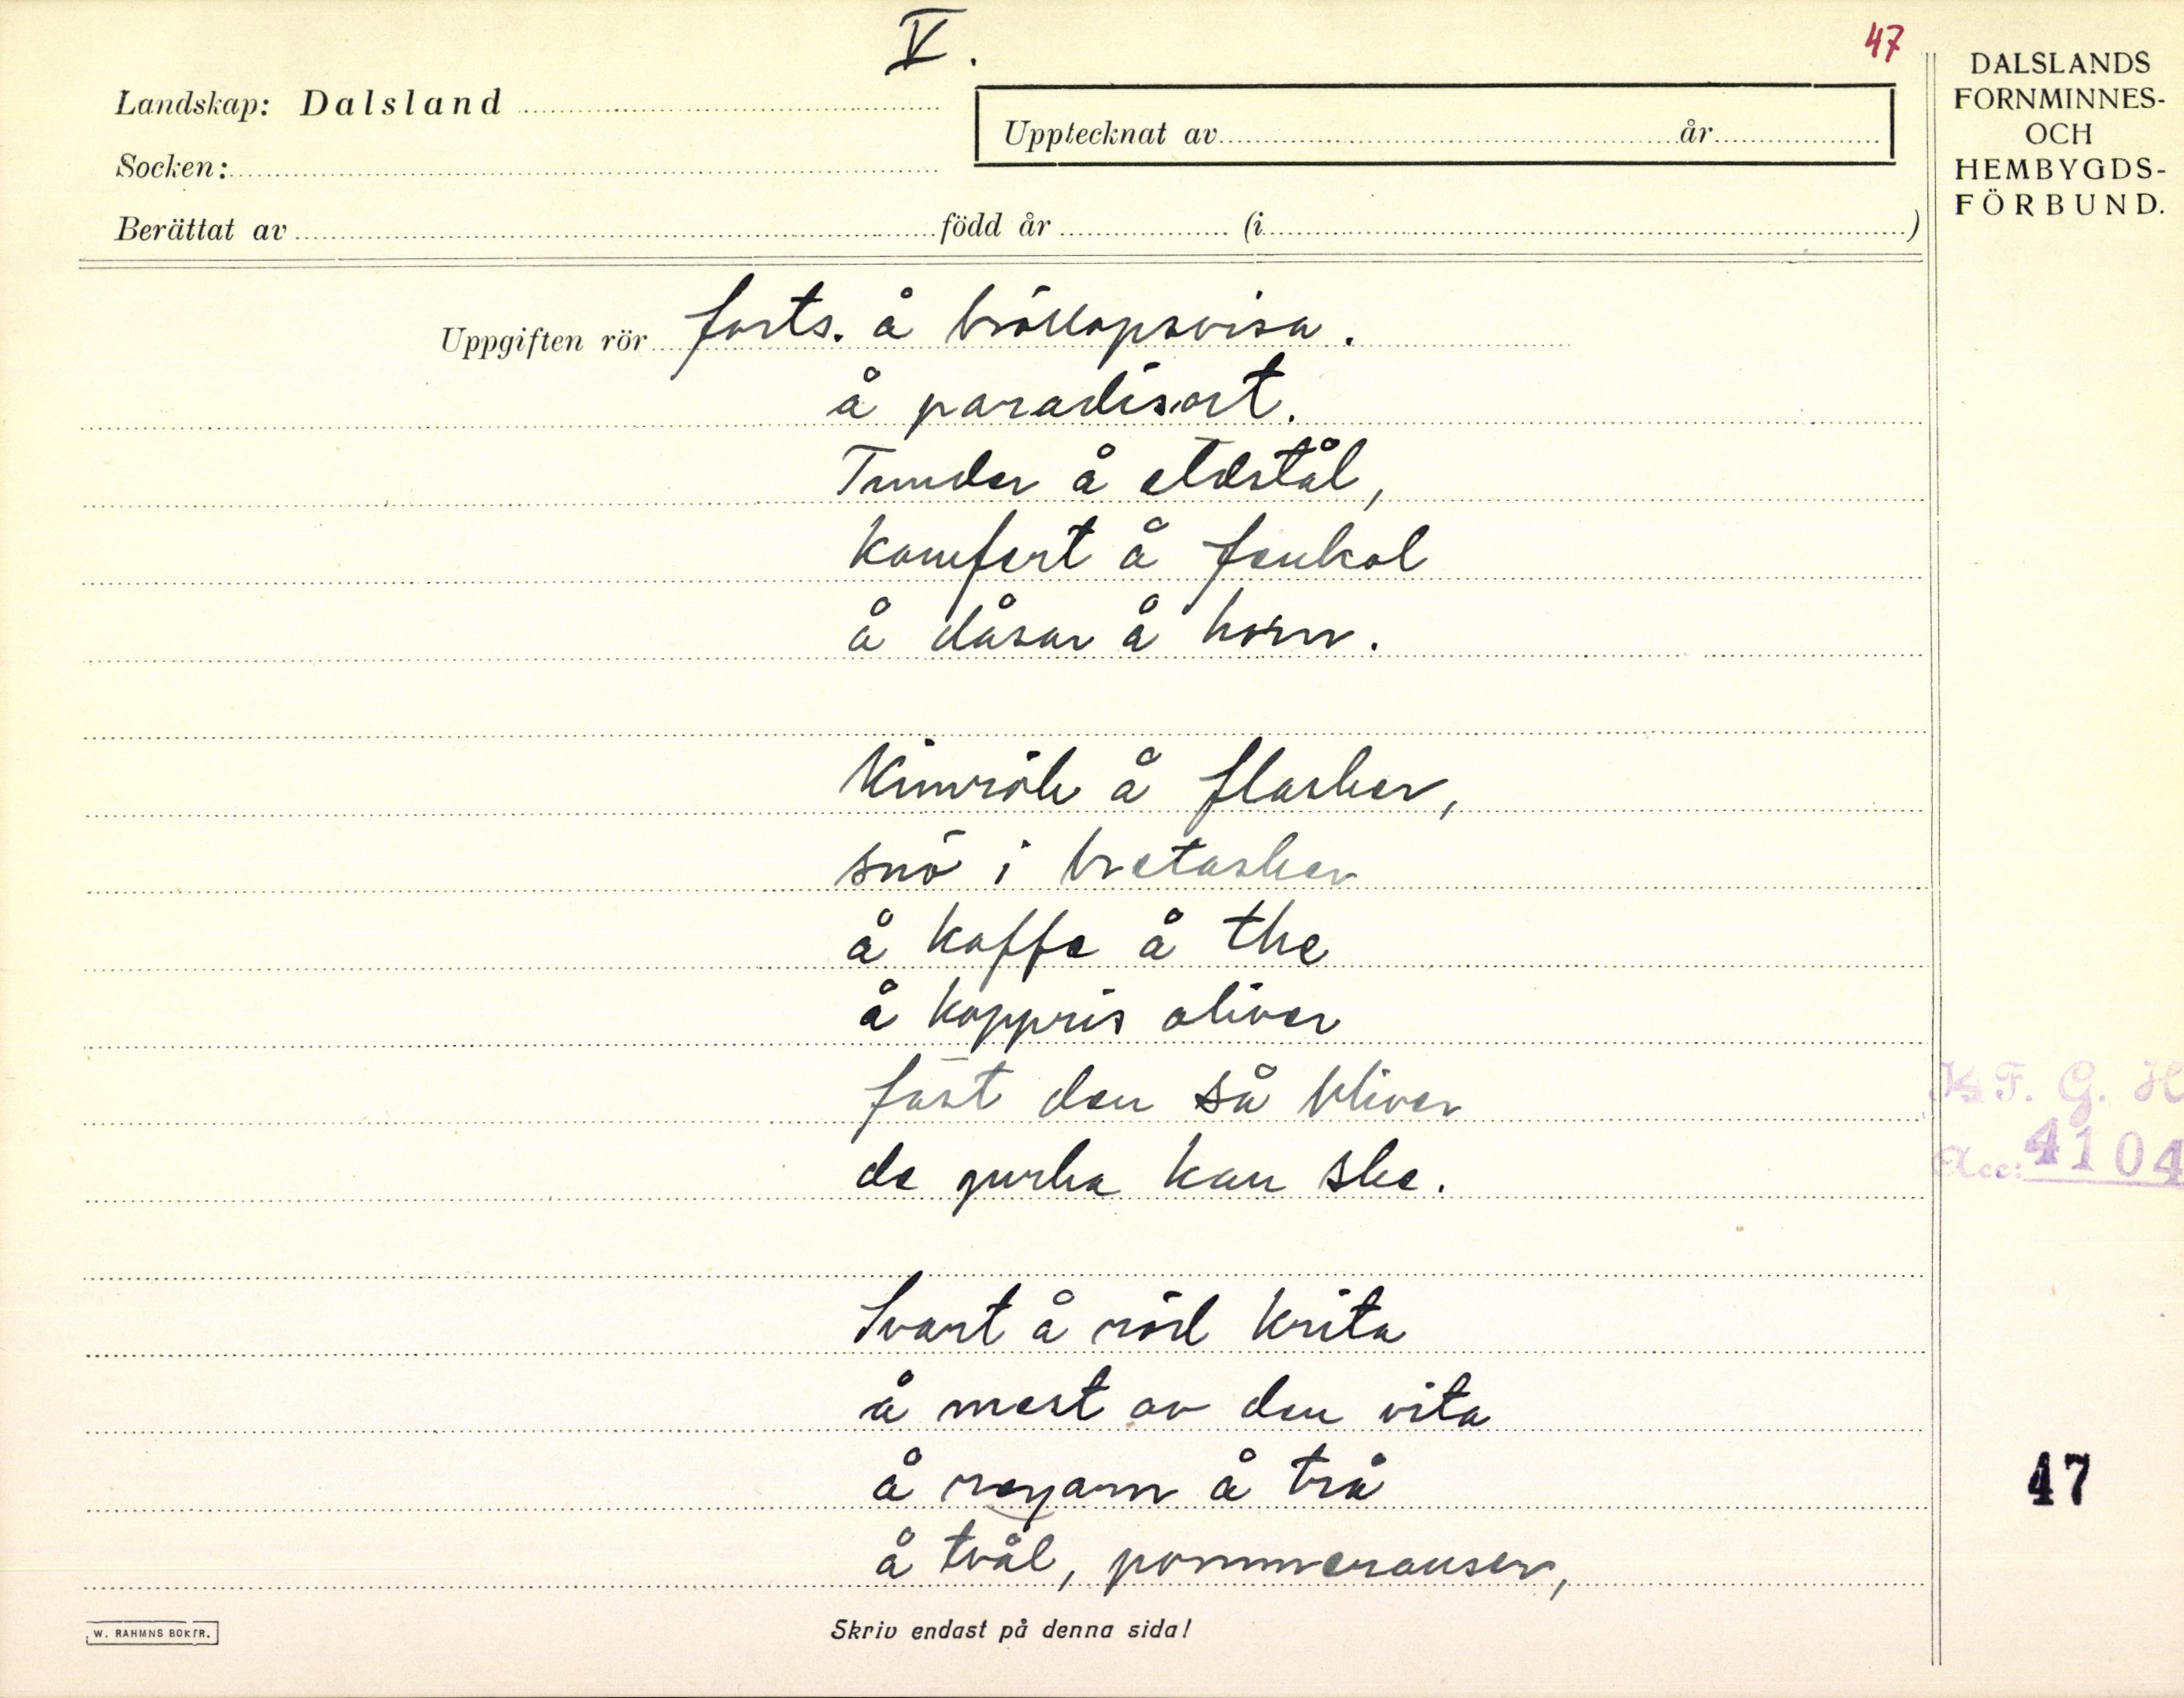 V.
47
DALSLANDS
FORNMINNES-
OCH
HEMBYGDS-
FÖRBUND.
Landskap: Dalsland
Upptecknat av år
Socken:
Berättat av född år (i )
Uppgiften rör forts. å bröllopsvisa.
å paradisort.
Tunder å eldstål,
Komfert å fenkol
å dåsar å horn.
Kimrök å flasker,
snö i bretasker
å kaffe å the
å kappris oliver
fast den så bliver
de gurka kan ske.
K F. G. H
Acc: 4104
Svart å röd krita
å mest av den vita
å regarn å trå
å tvål, pommeranser,
47
W. RAHMNS BOKTR.
Skriv endast på denna sida!